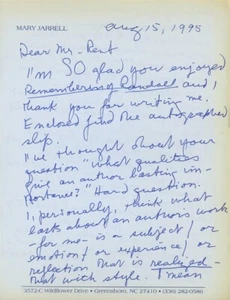 MARY JARRELL
Aug 15, 1998
Dear Mr. Rent
I'm SO glad you enjoyed
Remembering Randall and I
thank you for writing me.
Enclosed find the autographed
slip.
I've thought about your
question "What qualities
give an author lasting im-
portance?" Hard question.
I, personally, think what
lasts about an author's work
- for me - is a subject / or
emotion / or experience / or
reflection that is realized -
that with style. I mean
3572-C Wildflower Drive • Greensboro, NC 27410 • (336) 282-0586